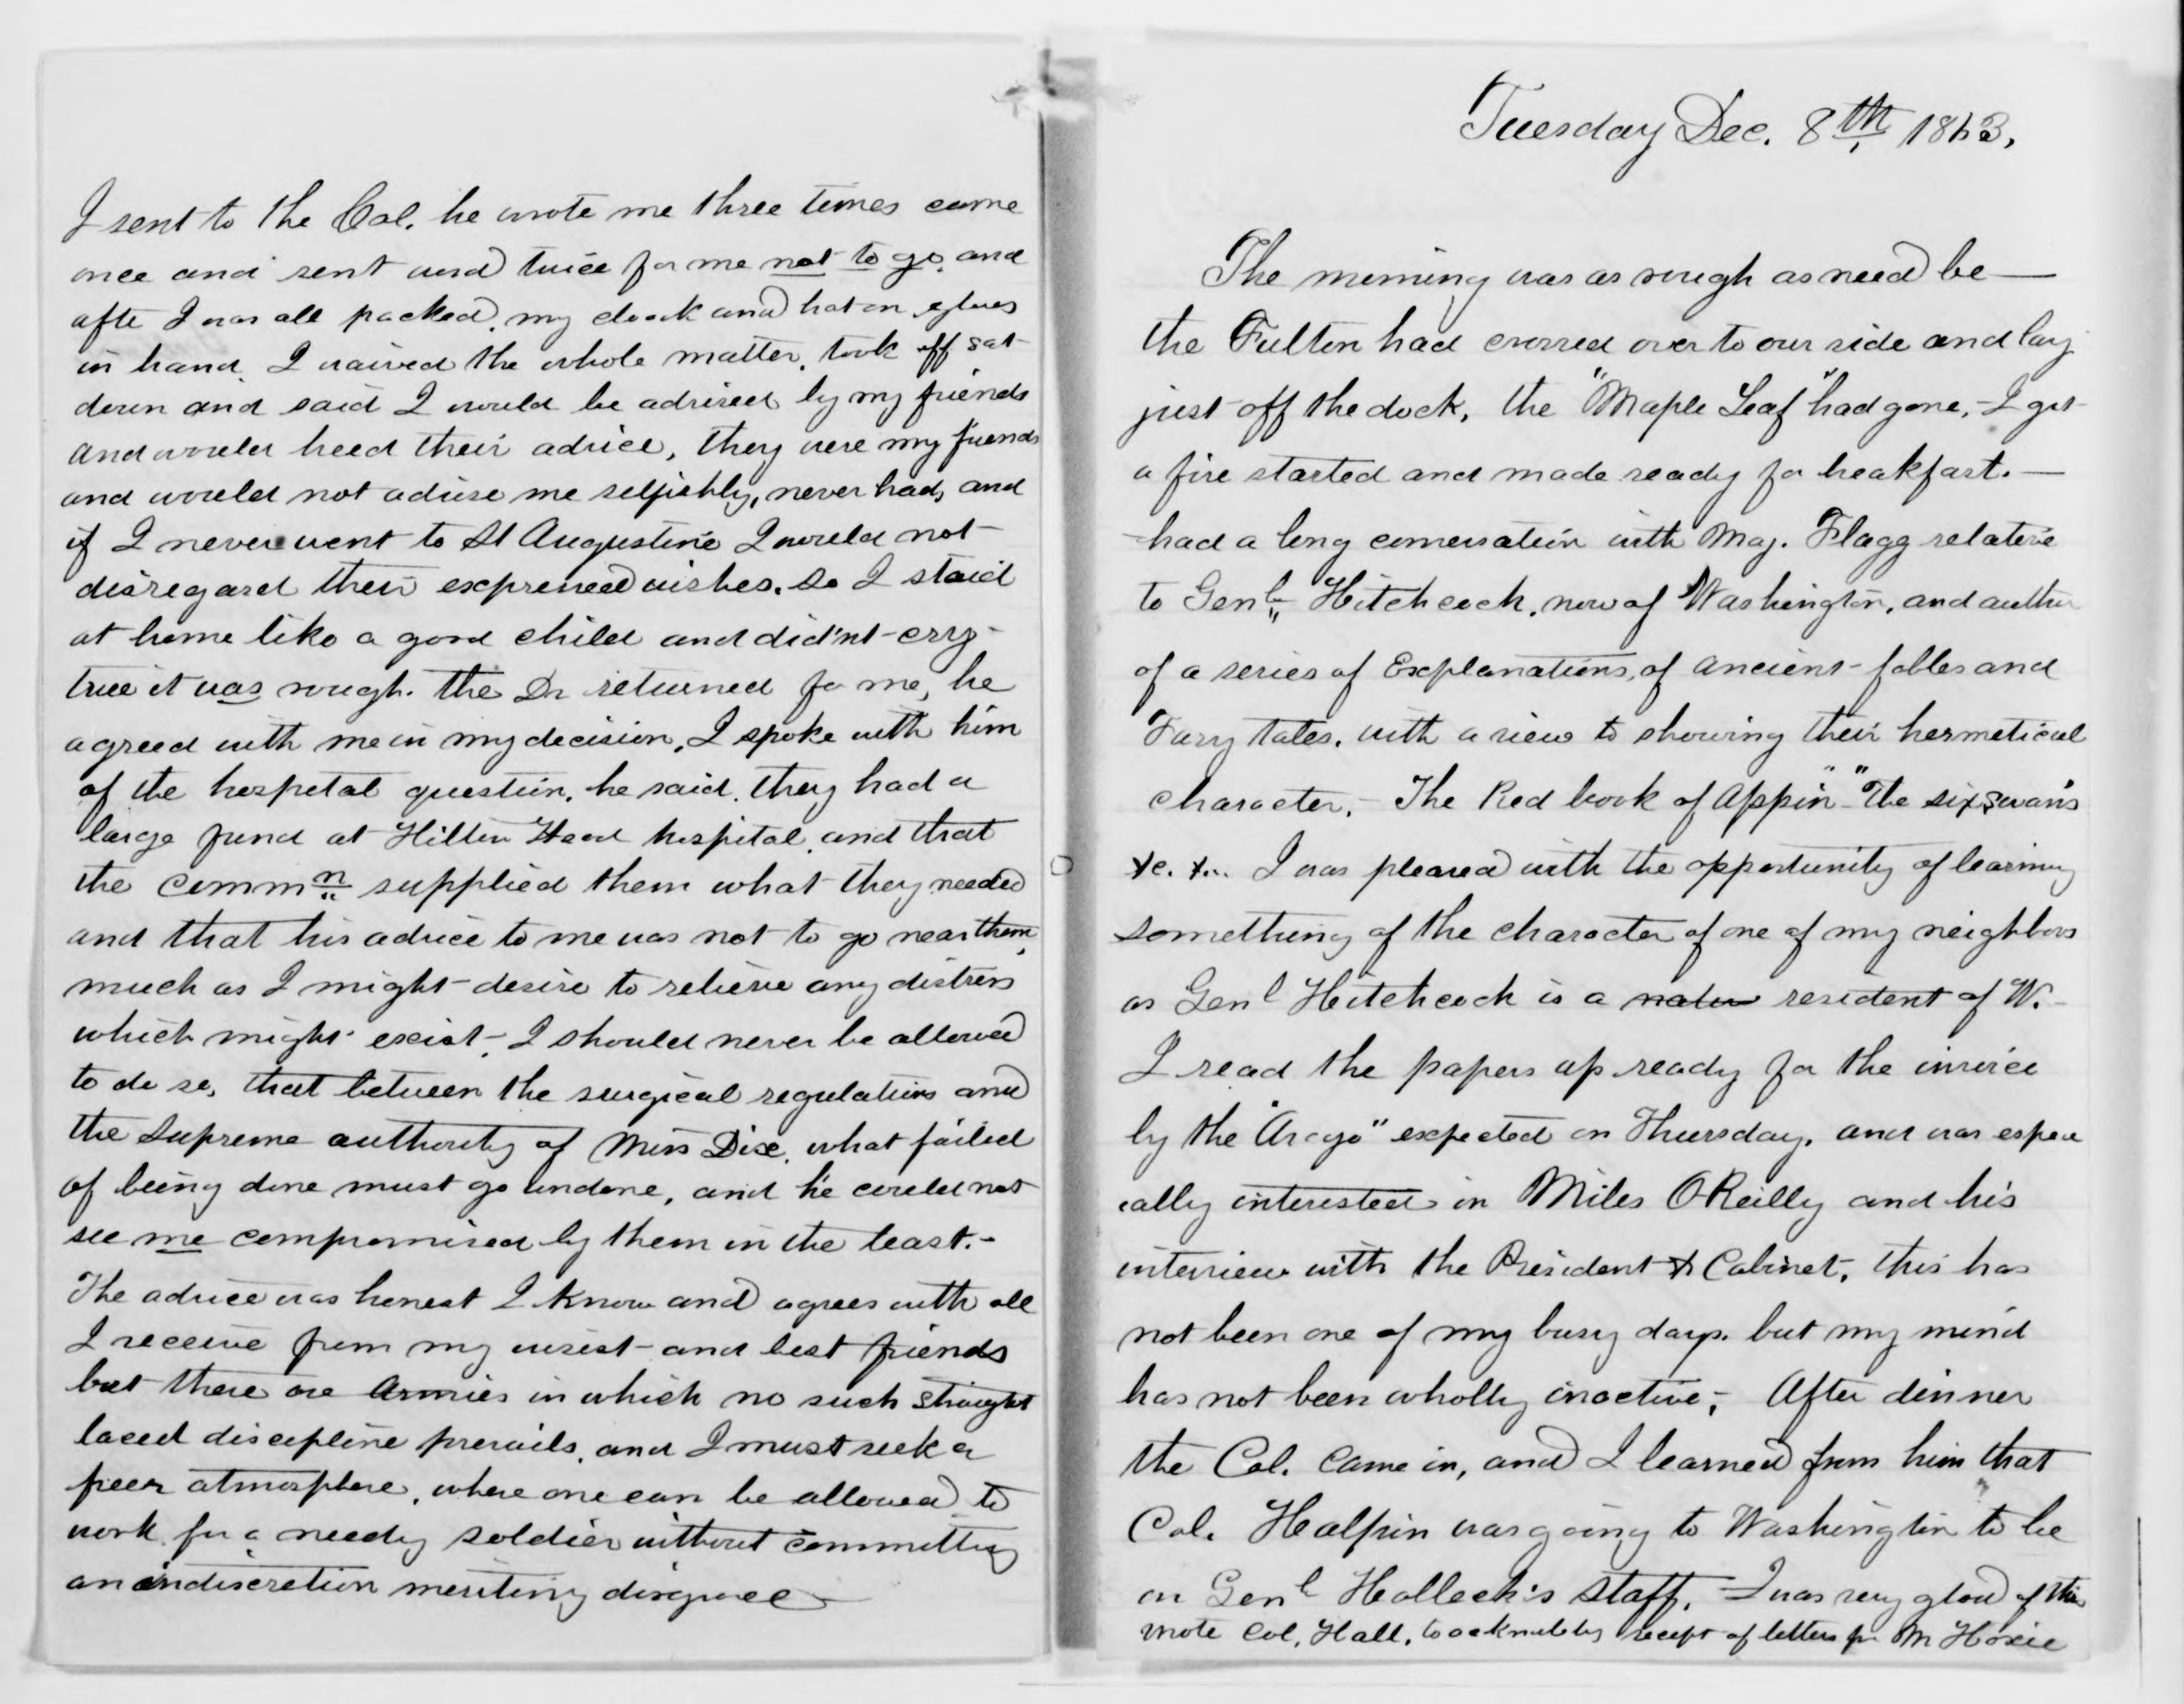 I sent to the Col. he wrote me three times came
once and sent word twice for me not to go, and
afte I was all packed, my cloak and hat on gloves
in hand, I waived the whole matter, took off sat
down and said I would be advised by my friends
and would heed their advice, they were my friends
and would not advise me selfishly, never had, and
if I never went to St Augustine I would not
disregard their expressed wishes. So I staid
at home like a good child and did'nt cry -
true it was rough. the Dr returned for me, he
agreed with me in my decision, I spoke with him
of the hospetal question, he said, they had a
large fund at Hilton Head hospital, and that
the commn supplied them what they needed
and that his advice to me was not to go near them,
much as I might desire to relieve any distress
which might exist, I should never be allowed
to do so, that between the surgical regulations and
the Supreme authority of Miss Dix, what failed
of being done must go undone, and he could not
see me compromised by them in the least. -
The advice was honest I know and agrees with all
I receive from my wisest and best friends
but there are Armies in which no such straight
laced discipline prevails, and I must seek a
freer atmosphere, where one can be allowed to
work for a needy soldier without committing
an indiscretion meriting disgrace —
Tuesday Dec. 8th 1863,
The morning was as rough as need be —
the Fulton had crossed over to our side and lay
just off the dock, the "Maple Leaf" had gone, - I got
a fire started and made ready for breakfast. —
had a long conversation with Maj. Flagg relative
to Genl Hitchcock, now of Washington, and author
of a series of Explanations, of ancient fables and
Fary tales, with a view to showing their hermetical
character. - The Red book of Appin" "The six swans
&c. &.. I was pleased with the opportunity of learning
something of the character of one of my neighbors
as Genl Hitchcock is a resident of W. -
I read the papers up ready for the invoice
by the "Arago" expected on Thursday, and was espec
ially interested in Miles O'Reilly and his
interview with the President & Cabinet, this has
not been one of my busy days. but my mind
has not been wholly inactive; After dinner
the Col. came in, and I learned from him that
Col. Halpin was going to Washington to be
on Genl Halleck's staff, - I was very glad of this
wrote Col. Hall, to acknowledg receipt of letters for M Hoxie